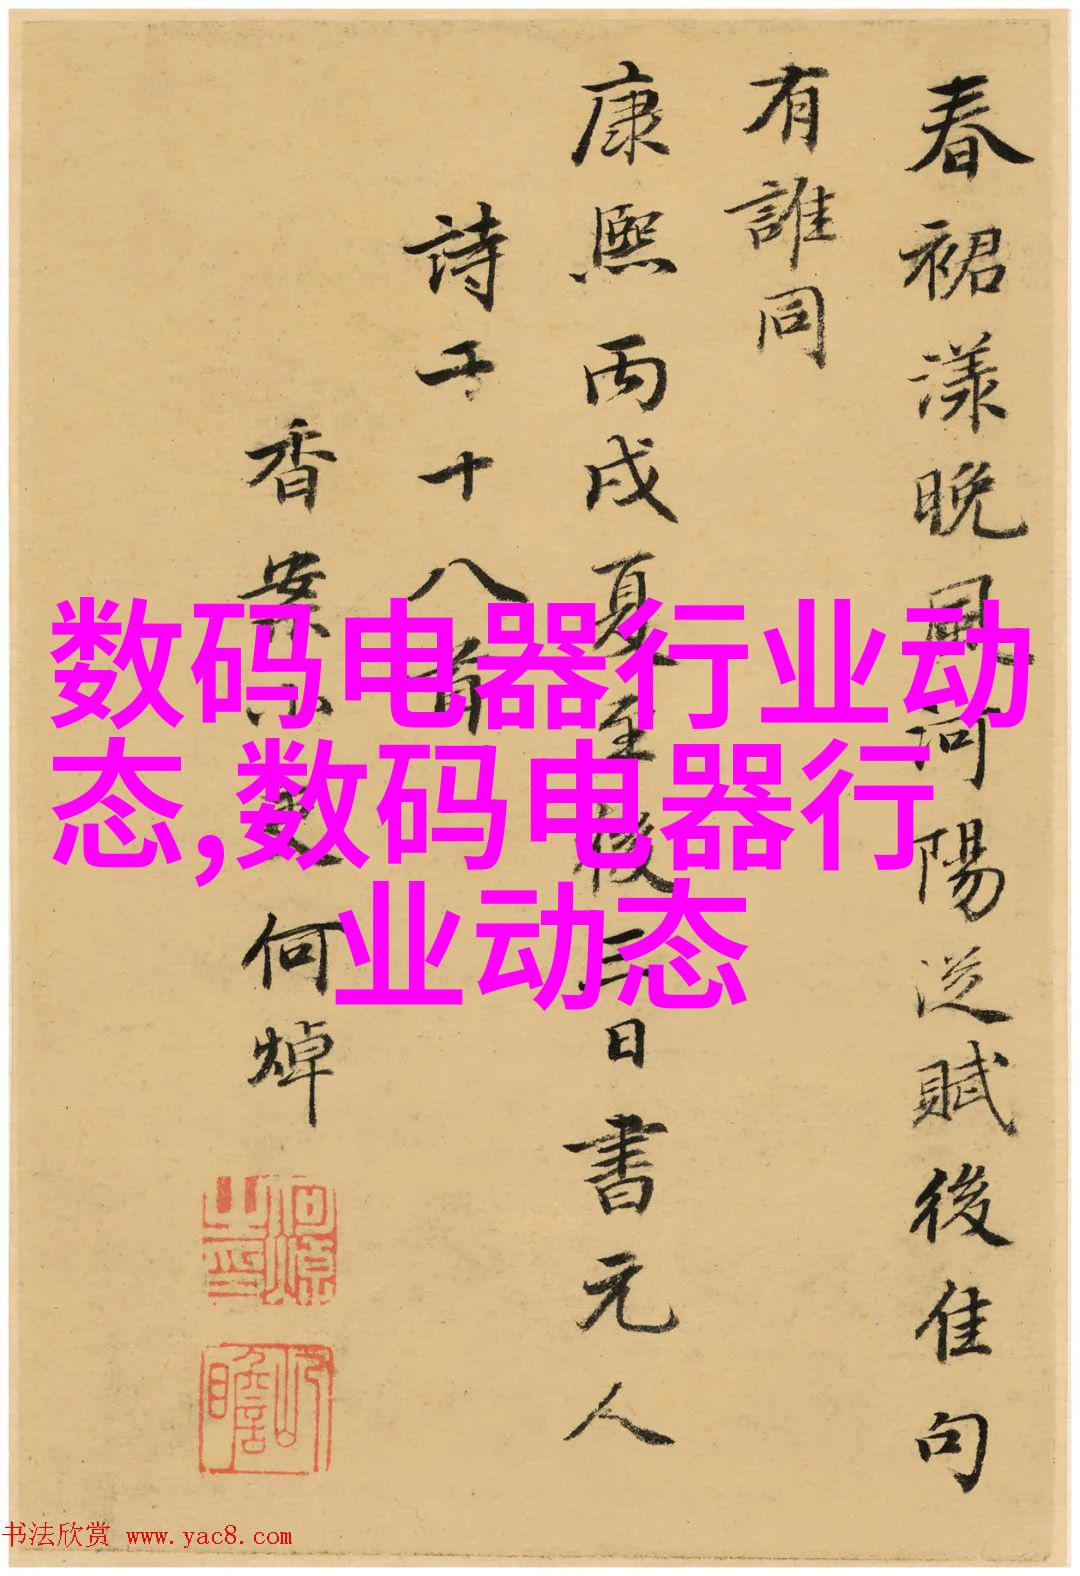 春裙漾晚風河陽從賦後佳句
有誰同
康熙丙戌夏至後三日書元人
詩五十八首
香案小吏何焯
数码电器行业动
态,数码电器行
业动态
书法欣赏 www.yac8.com